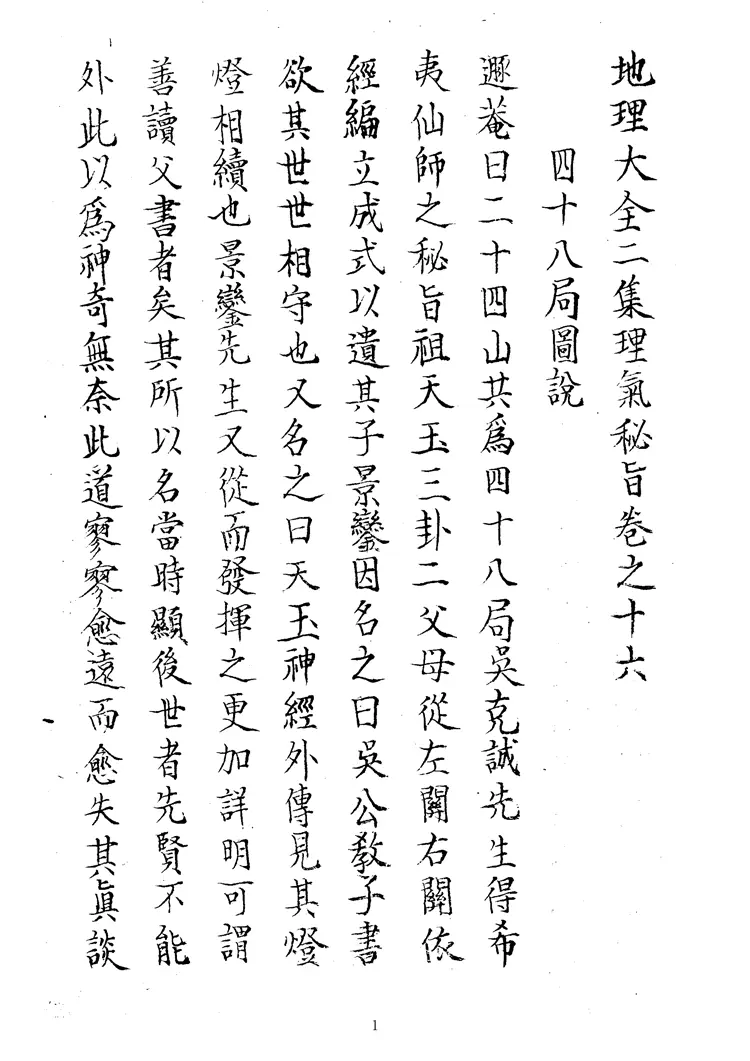 地理大全二集理氣秘旨卷之十六
四十八局圖説
遯菴曰二十四山共爲四十八局吳克誠先生得希
夷仙師之秘旨祖天玉三卦二父母從左關右關依
經編立成式以遺其子景鸞因名之曰吳公教子書
欲其世世相守也又名之曰天玉神經外傳見其燈
燈相續也景鸞先生又從而發揮之更加詳明可謂
善讀父書者矣其所以名當時顯後世者先賢不能
外此以爲神奇無奈此道寥寥愈遠而愈失其眞談
1